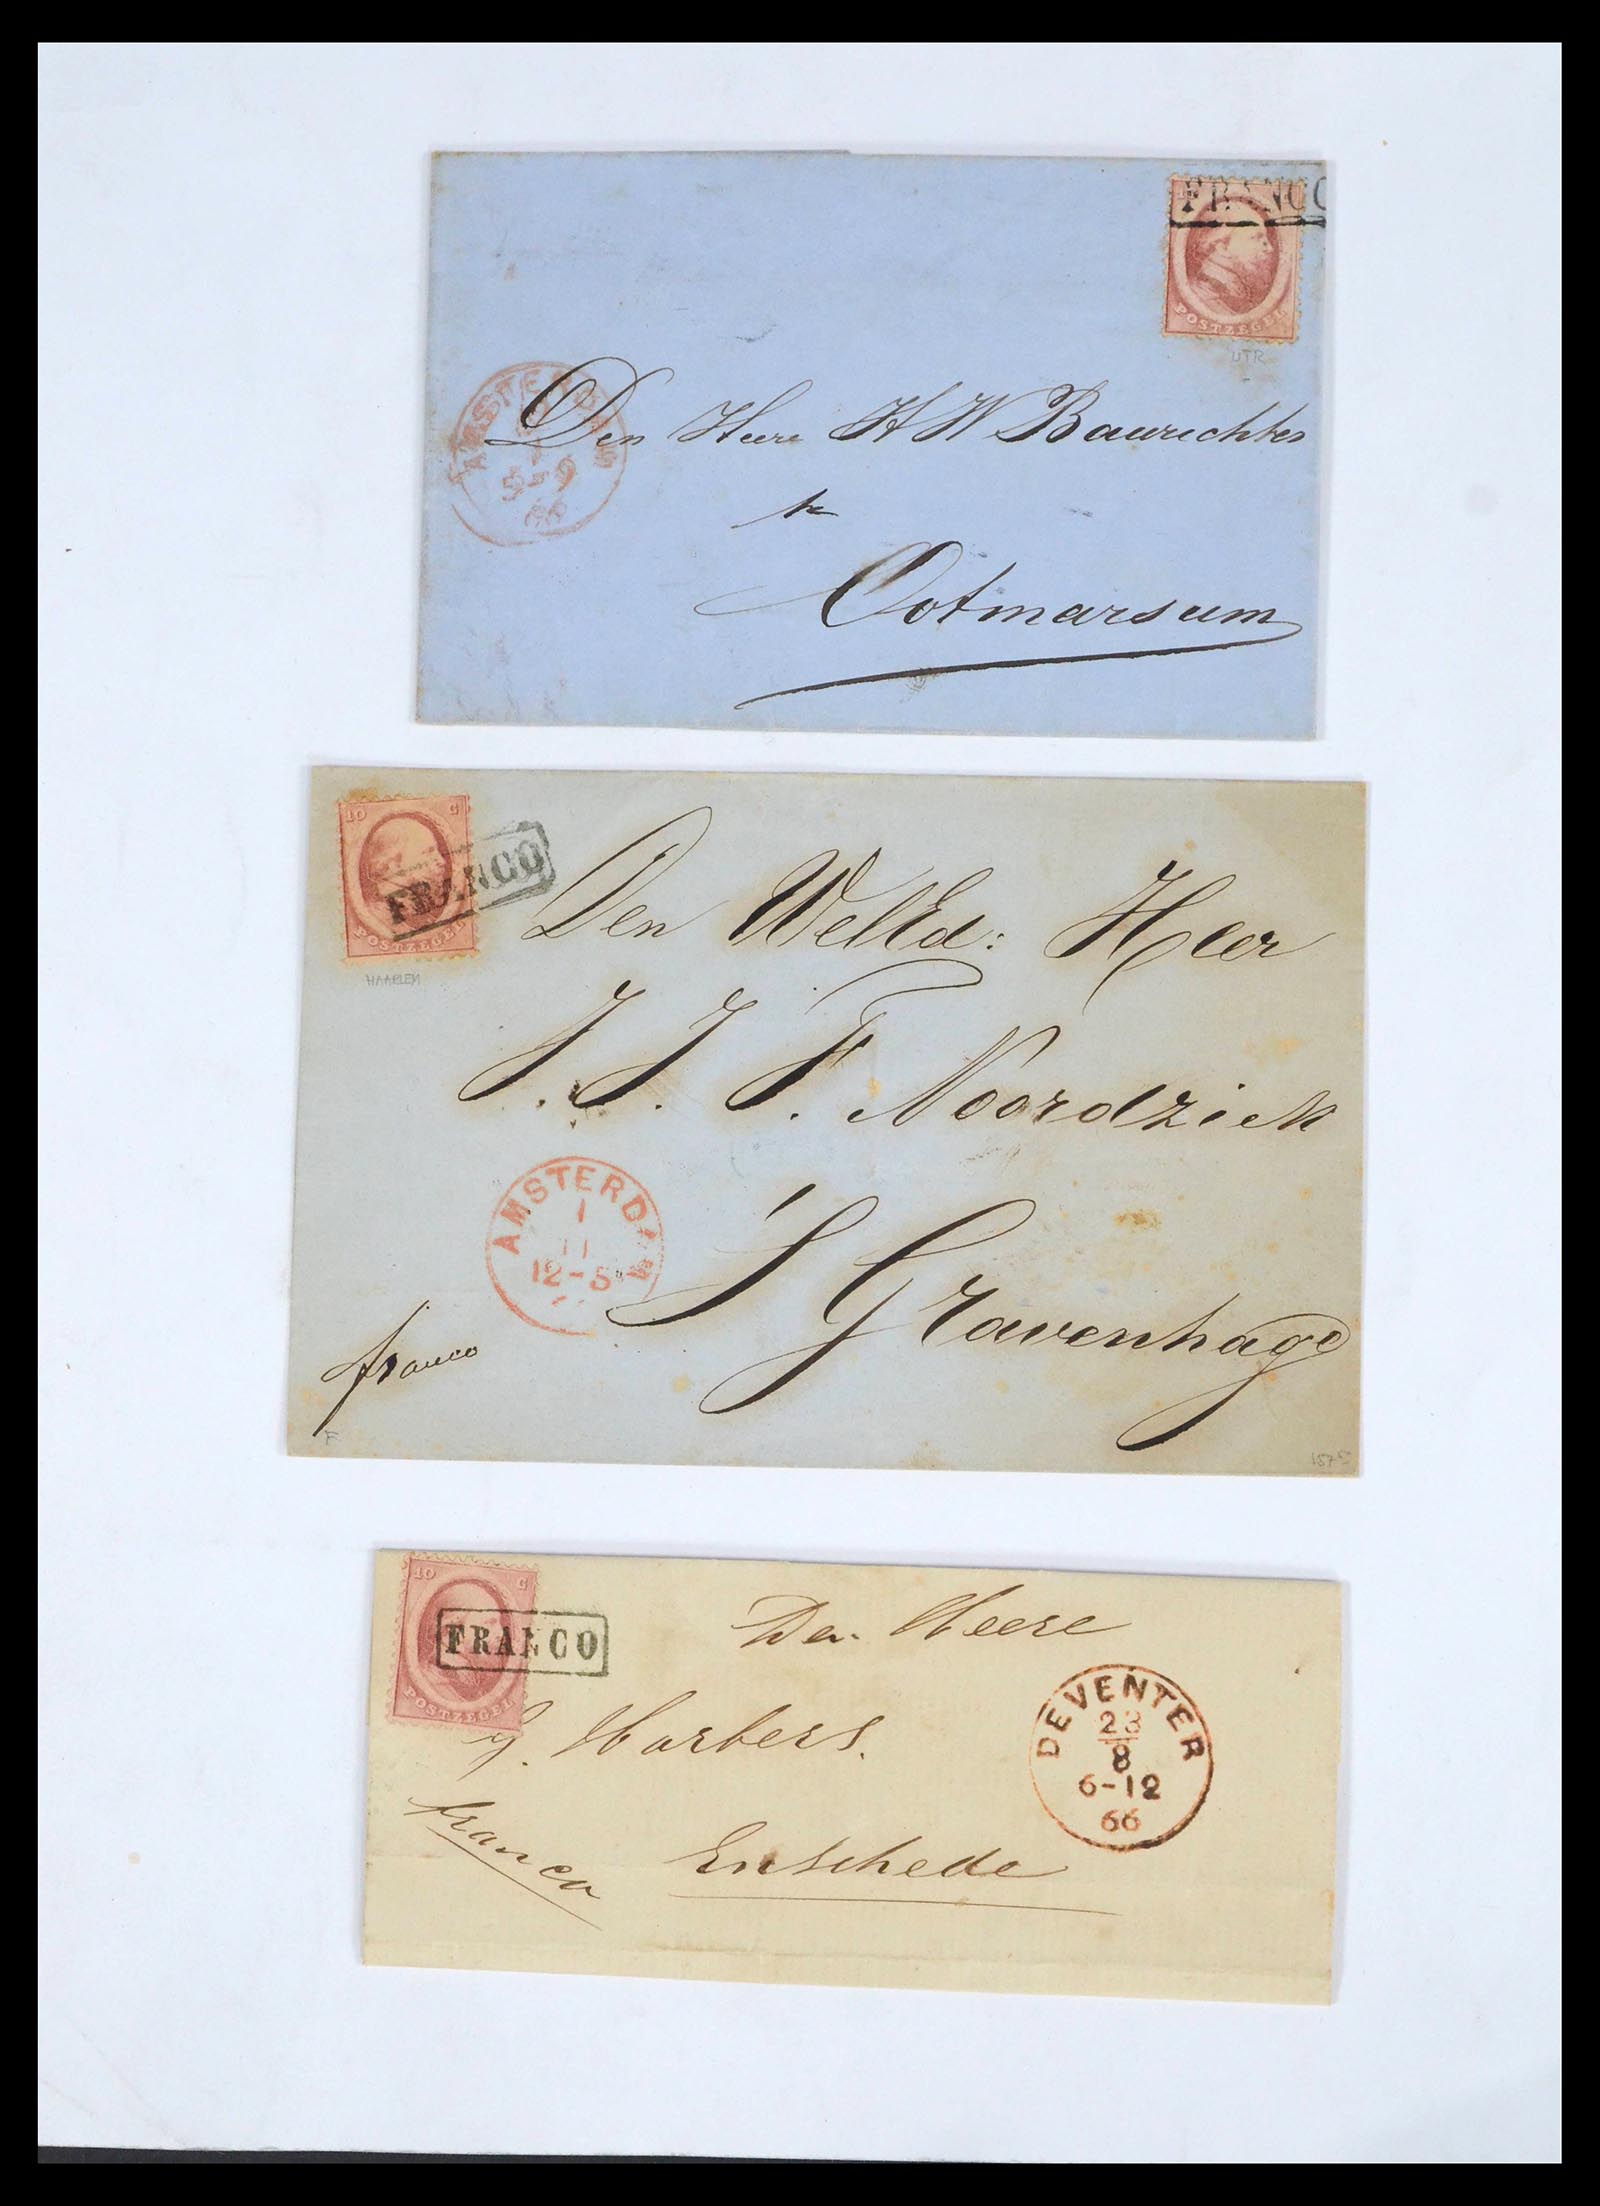 FRANCO
POSTZEGEL
UTR
Den Heer H W Baurichter
te
Ootmarsum
5-9
10 C
FRANCO
POSTZEGEL
HAARLEM
Den WelEd: Heer
J. J. F. Noordziek
'S Gravenhage
AMSTERDAM
1
11
12-5
franco
F
10 C
FRANCO
POSTZEGEL
Den Heere
G. Harbers.
franco
Enschede
DEVENTER
23
8
6-12
66